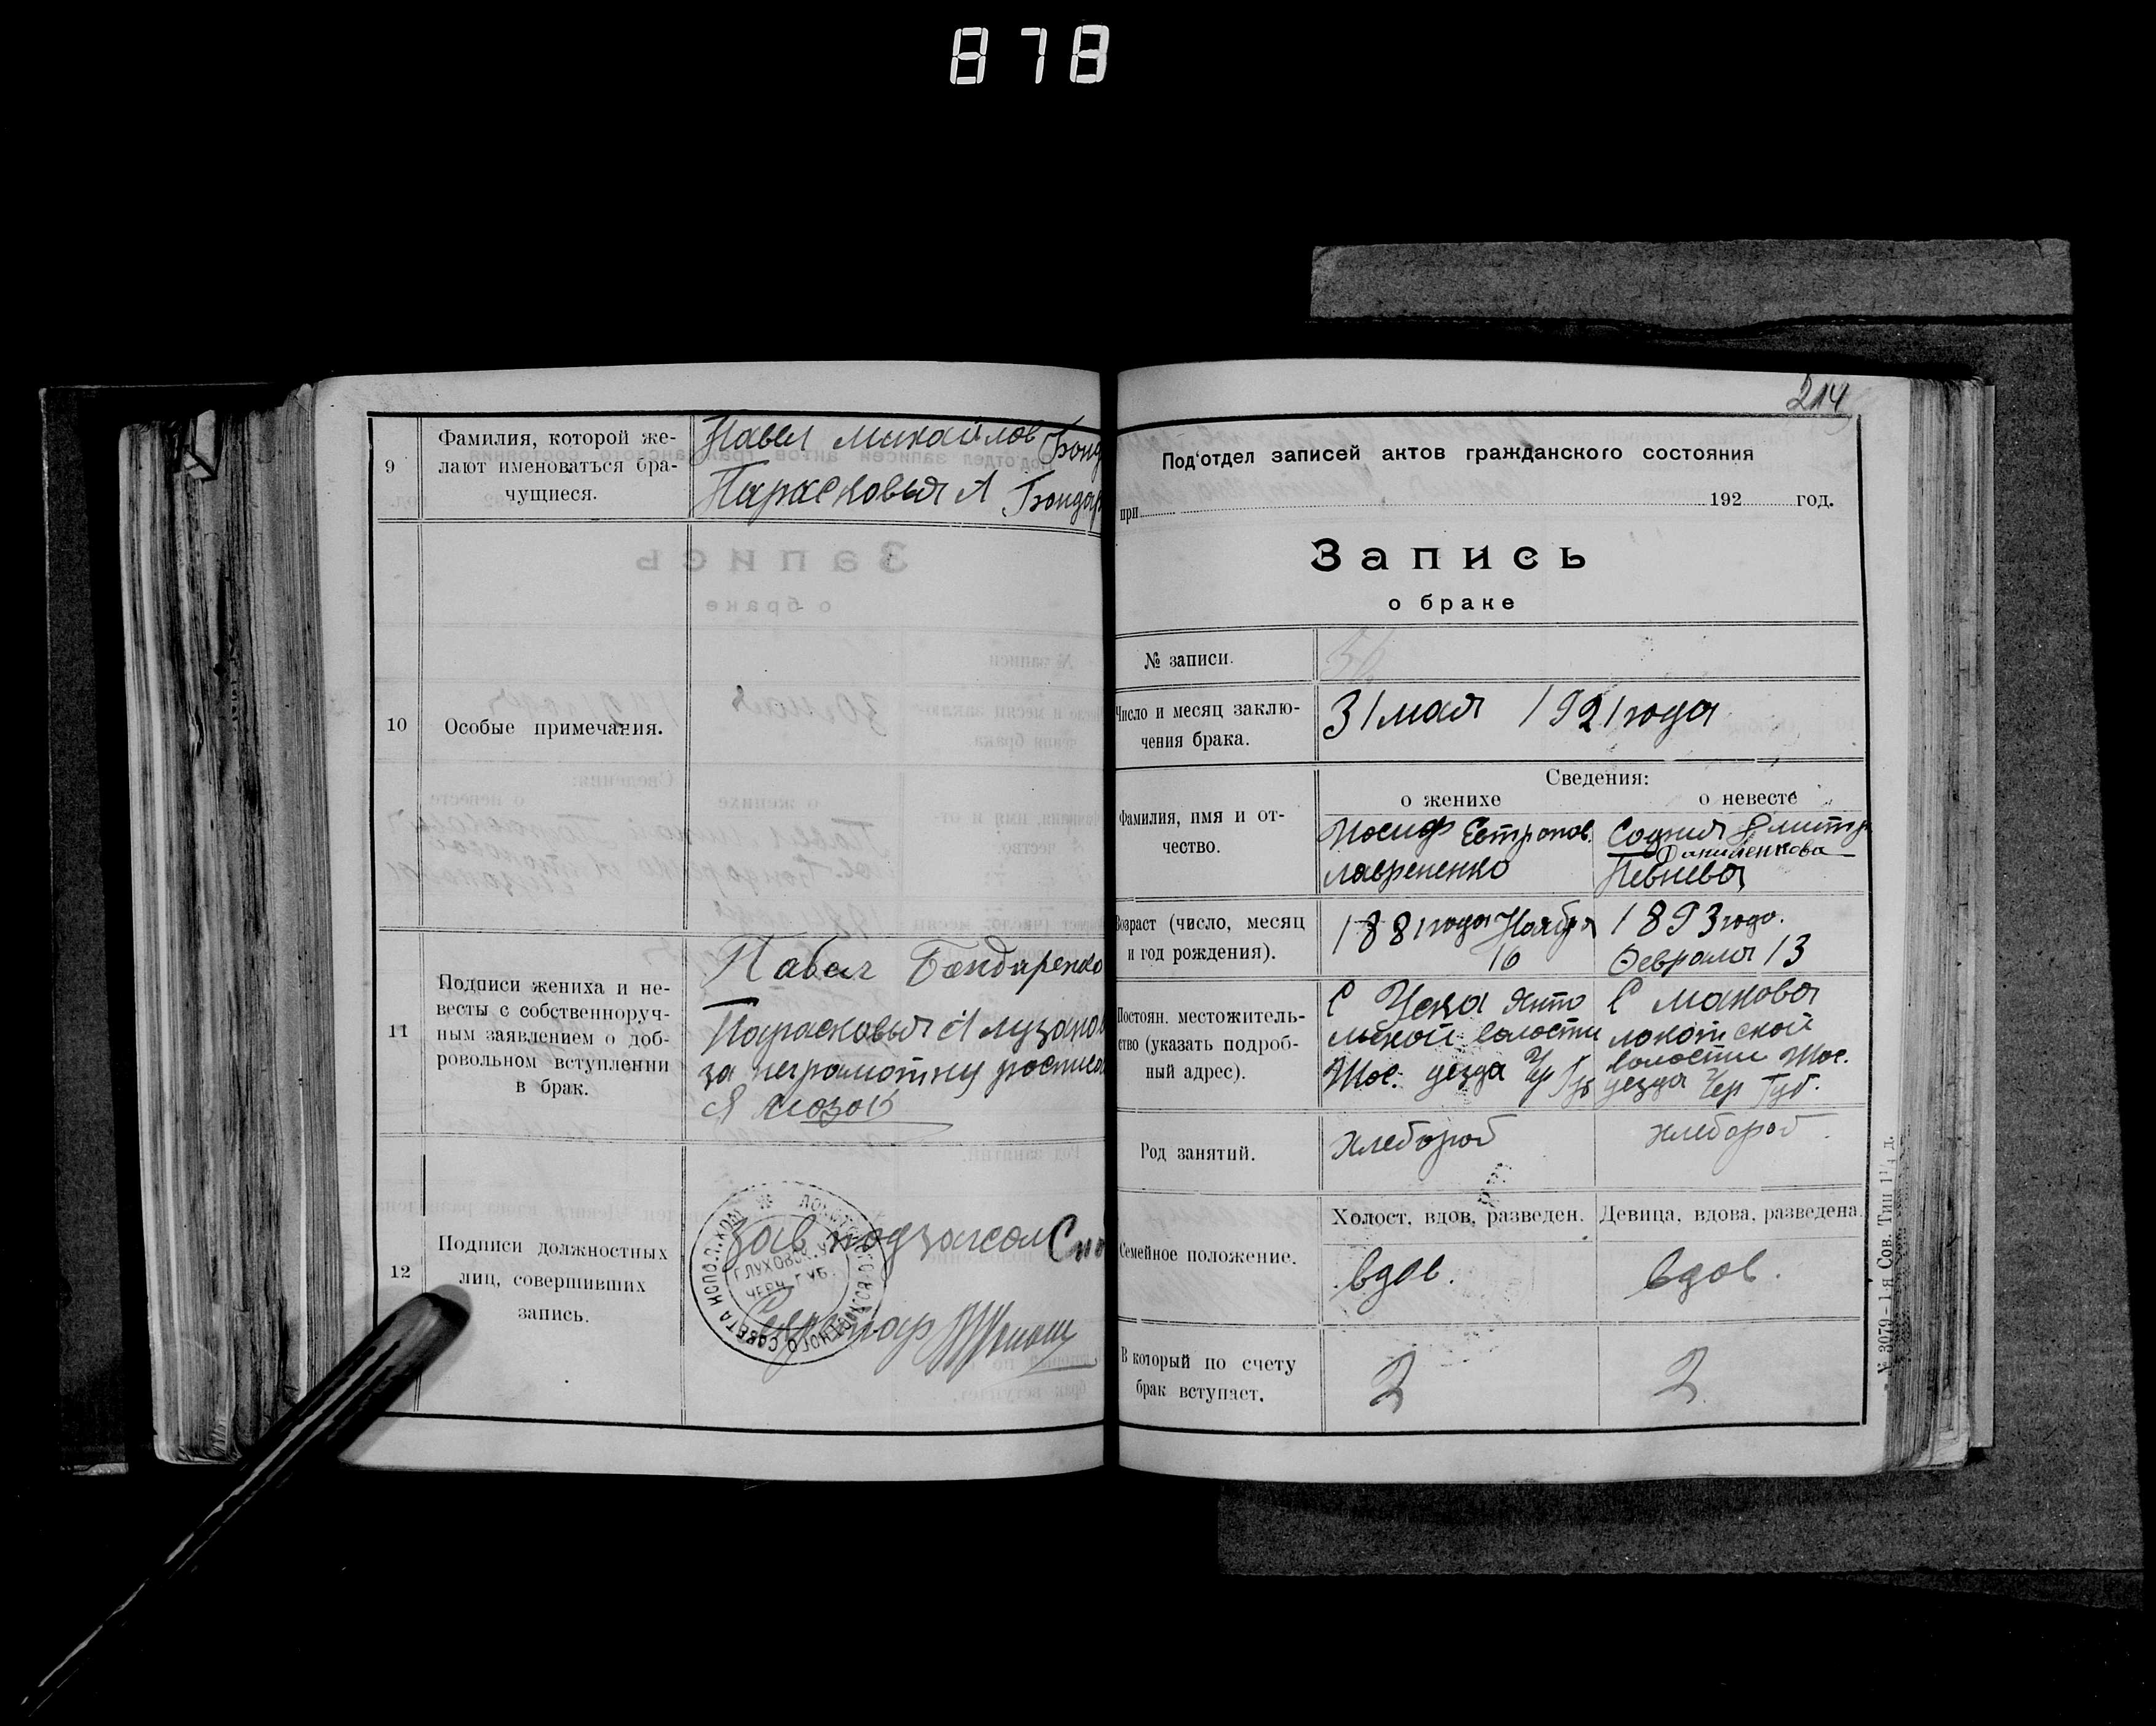 878
9
Фамилия, которой же-
лают именоваться бра-
чущиеся.
Павел михайлов Бонд
Парасковья А Бондар
10
Особые примечания.
11
Подписи жениха и не-
весты с собственноруч-
ным заявлением о доб-
ровольном вступлении
в брак.
Павел Бондаренко
Парасковья А лузанов
за неграмотну росписал
12
Подписи должностных
лиц, совершивших
запись.
Зав подзагсом
ГЛУХОВСК. У.
ЧЕРН. ГУБ.
Секретар
214
Под'отдел записей актов гражданского состояния
при 192 год.
Запись
о браке
№ записи.
56
Число и месяц заклю-
чения брака.
31 мая 1921 года
Сведения:
о женихе
о невесте
Фамилия, имя и от-
чество.
Иосиф Евтропов.
лавриненко
София Дмитр
Даниленкова
Певнева
Возраст (число, месяц
и год рождения).
1881 года Ноября
16
1893 года.
Февраля 13
Постоян. местожитель-
ство (указать подроб-
ный адрес).
С Уска Янпо
льской волости
уезда
С макова
локотской
волости
уезда Чер Губ.
Род занятий.
хлебороб
хлебороб
Семейное положение.
Холост, вдов, разведен.
Девица, вдова, разведена.
вдов.
вдов.
В который по счету
брак вступает.
2
2
№ 3079-1-я Сов. Тип